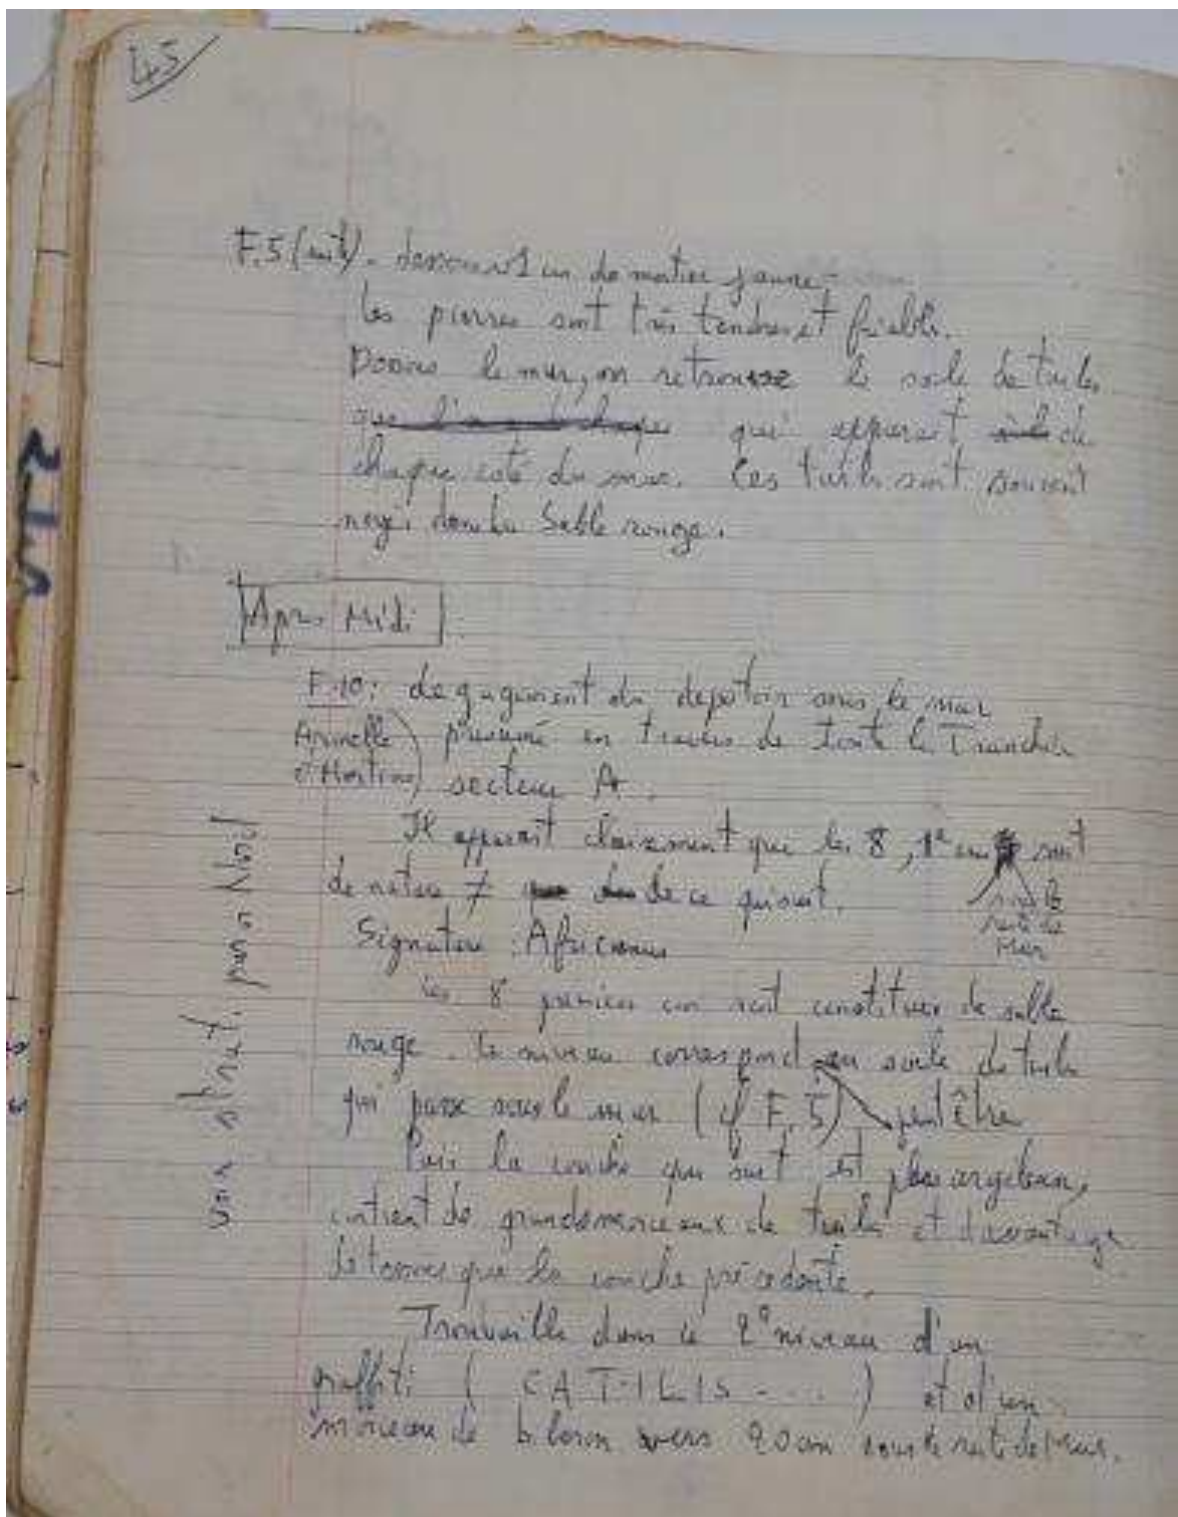 45
F.5 (suite) - dessous 1 cm de mortier jaune -
les pierres sont très tendres et friable.
Dessous le mur, on retrouve le socle de tuiles
qui apparait de
chaque coté du mur. Ces tuiles sont souvent
noyés dans du sable rouge.
Apres Midi
F.10: degagement du depotoir sous le mur
Armelle présumé en travers de toute la Tranchée
secteur A.
Il apparait clairement que les 8, 1e cm sont
de nature ≠ de ce qui suit.
sous le
reste de
Mur
Signature : Africanus
Les 8 premiers cm sont constitués de sable
rouge. Ce niveau correspond au socle de tuiles
qui passe sous le mur (cf F.5) peut être
Puis la couche qui suit est plus argileuse,
contient de grands morceaux de tuiles et davantage
de tessons que la couche précédente.
Trouvaille dans le 2e niveau d'un
graffiti ( CATILIS - . . ) et d'un
morceau de vers 20 cm sous le reste de Mur.
pour Noël